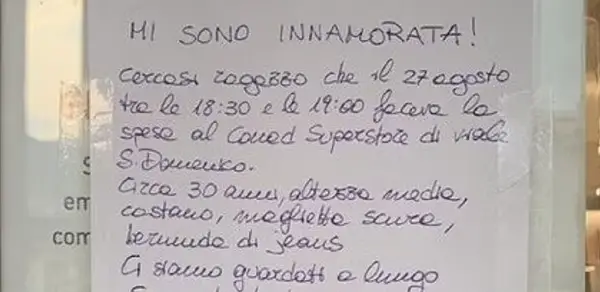 MI SONO INNAMORATA!
Cercasi ragazzo che il 27 agosto
tra le 18:30 e le 19:00 faceva la
spesa al Conad Superstore di viale
S. Domenico.
Circa 30 anni, altezza media,
castano, maglietta scura,
bermuda di jeans
Ci siamo guardati a lungo
em
com